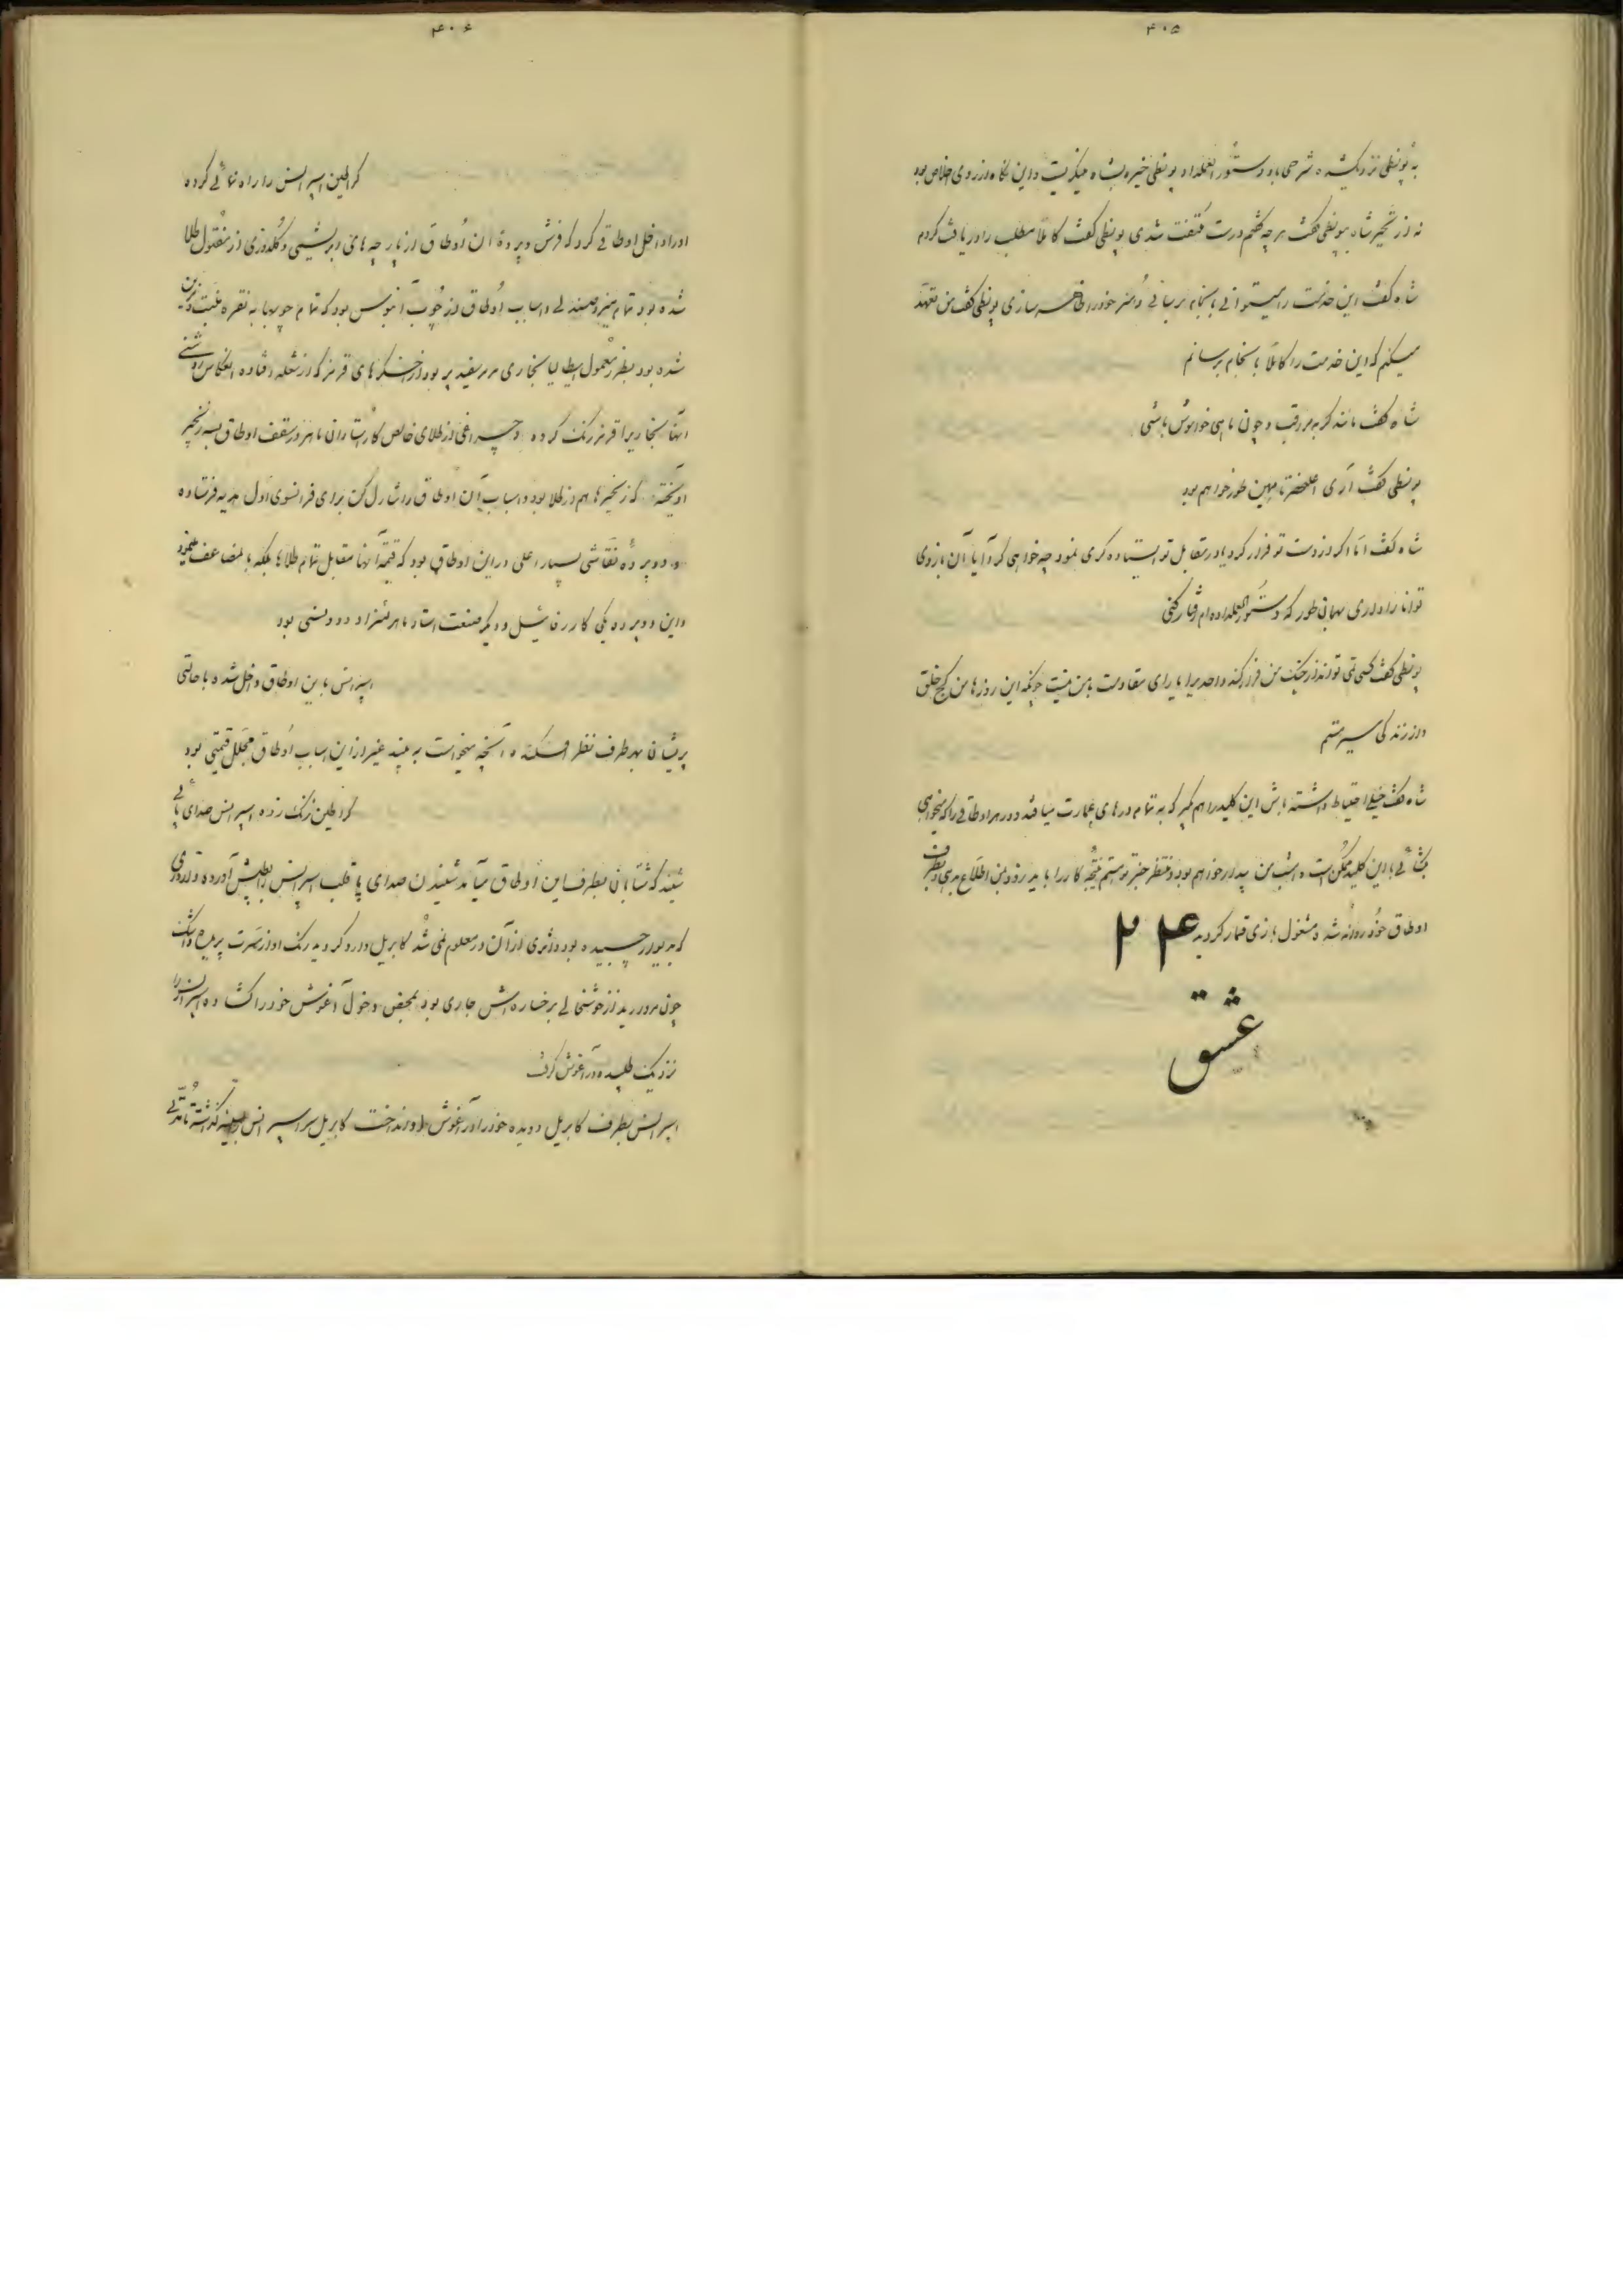 ۴۰۵
به پونظی نزدیک شده شرحی باو دستور العمل داد پونظی خیره بشاه میگریست و این نگاه از روی اخلاص بود
نه از تحیر شاه بپونظی گفت هر چه گفتم درست ملتفت شدی پونظی گفت کاملا مطلب را دریافت کردم
شاه گفت این خدمت را میتوانی بانجام برسانی و هنر خود را ظاهر سازی پونظی گفت من تعهد
میکنم که این خدمت را کاملا بانجام برسانم
شاه گفت مانند گربه مراقب و چون ماهی خواموش باشی
پونظی گفت آری اعلحضرتا همین طور خواهم بود
شاه گفت اما اگر از دست تو فرار کرد یا در مقابل تو ایستاده گری نمود چه خواهی کرد آیا آن بازوی
توانا را داری همان طور که دستور العمل داده ام رفتار کنی
پونظی گفت کسی نمی تواند از چنگ من فرار کند و احدیرا یارای مقاومت با من نیست چونکه این روزها من کج خلق
و از زندگی سیر هستم
شاه گفت خیلی احتیاط داشته باش این کلید را هم بگیر که به تمام درهای عمارت میافتد و در هر اوطاقی را که میخواهی
بگشائی با این کلید ممکن است امشب من بیدار خواهم بود و منتظر خبر تو هستم نتیجه کار را باید زود بمن اطلاع بدهی و بطرف
اوطاق خود روانه شد و مشغول بازی قمار گردید
۲۴
عشق
۴۰۶
کراطین اسپرانس را راه نمائی کرده
او را داخل اوطاقی کرد که فرش و پردهٔ آن اوطاق از پارچه های ابریشمی و گلدوزی از مفتول طلا
شده بود تمام میز و صندلی و اسباب اوطاق از چوب آبنوس بود که تمام چوبها به نقره مثبت و مزین
شده بود بطرز معمول ایطالیا بخاری مرمر سفید پر بود از اخگرهای قرمز که از شعله افتاده انعکاس روشنی
آنها بخاریرا قرمز رنگ کرده و چراغی از طلای خالص کار استادان ماهر در سقف اوطاق بسه زنجیر
آویخته که زنجیرها هم از طلا بود و اسباب آن اوطاق را شارل کن برای فرانسوی اول هدیه فرستاده
و دو پرده نقاشی بسیار اعلی در این اوطاق بود که قیمة آنها مقابل تمام طلاها بلکه با لمضاعف مینمود
و این دو پرده یکی کار رفائیل و دیگر صنعت استاد ماهر لئنارد دوونسی بود
اسپرانس باین اوطاق داخل شده با حالتی
پریشان بهر طرف نظر افکنده و آنچه میخواست به بیند غیر از این اسباب اوطاق مجلل قیمتی بود
کراطین زنگ زده اسپرانس صدای پائی
شنید که شتابان بطرف این اوطاق میآید شنیدن صدای پا قلب اسپرانس را بطپش آورده و از دری
که بدیوار چسبیده بود و اثری از آن در معلوم نمی شد کابریل وارد گردید رنگ او از مسرت پریده و اشک
چون مروارید از خوشحالی بر خساره اش جاری بود بمحض دخول آغوش خود را گشاده اسپرانس را
نزدیک طلبیده در آغوش گرفت
اسپرانس بطرف کابریل دویده خود را در آغوش او انداخت کابریل سر اسپرانس را بسینه گذاشته تا مدتی